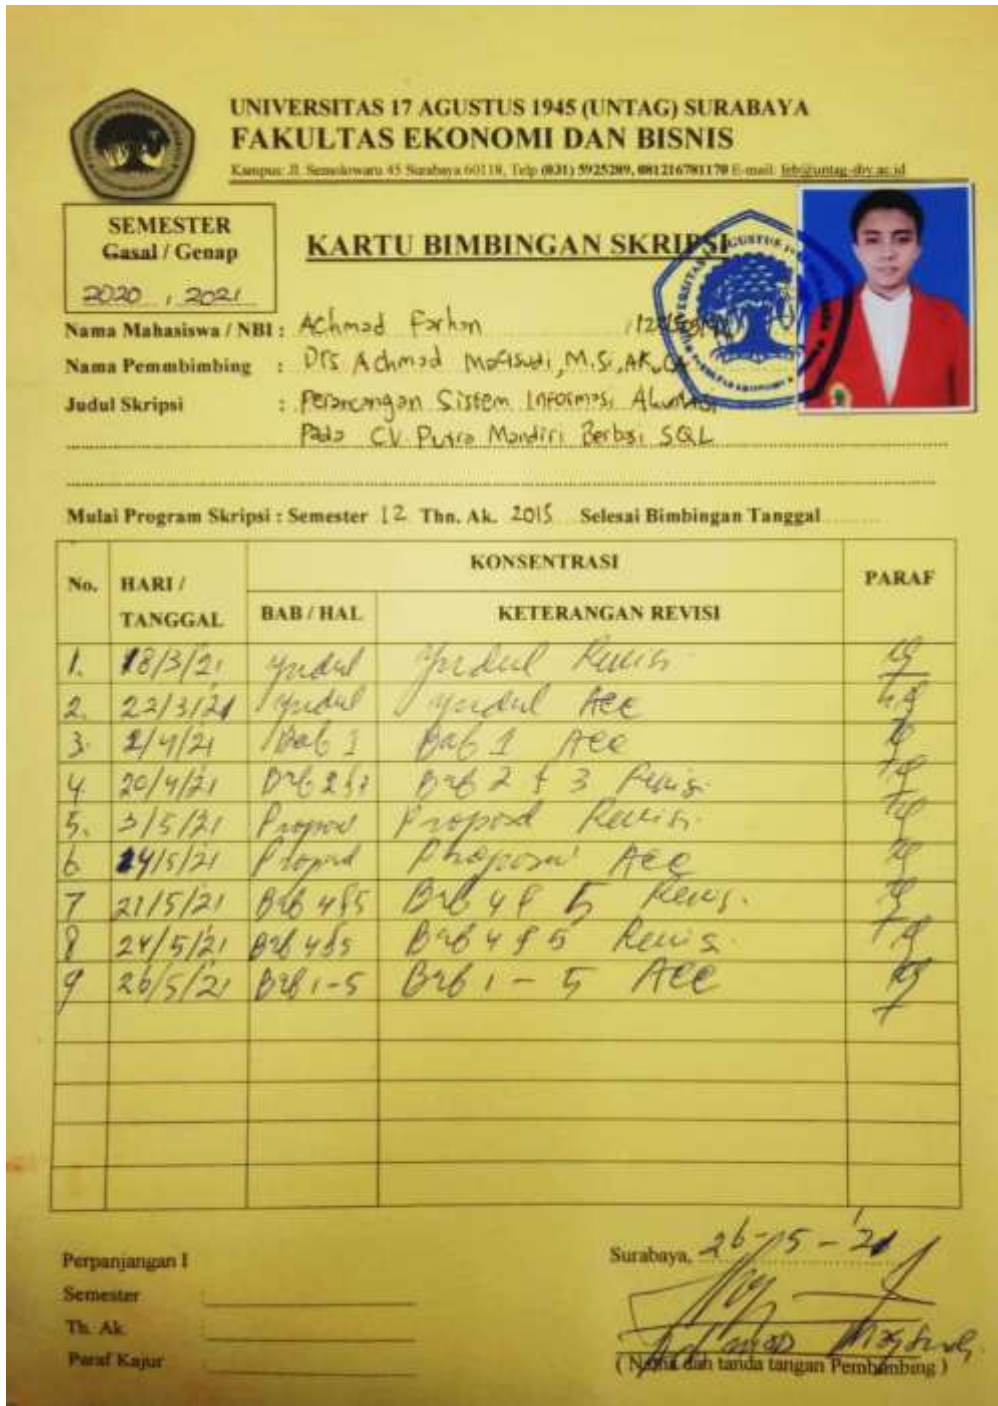 UNIVERSITAS 17 AGUSTUS 1945 (UNTAG) SURABAYA
FAKULTAS EKONOMI DAN BISNIS
Kampus: Jl. Semolowaru 45 Surabaya 60118, Telp (031) 5925289, 081216781170 E-mail: feb@untag-sby.ac.id
SEMESTER
Gasal / Genap
2020 , 2021
KARTU BIMBINGAN SKRIPSI
Nama Mahasiswa / NBI : Achmad Farhan
Nama Pemmbimbing : Drs Achmad Maqsudi, M.Si, AK, CA
Judul Skripsi : Perancangan Sistem Informasi Akuntasi
Pada CV Putra Mandiri Berbasi SQL
Mulai Program Skripsi : Semester 12 Thn. Ak. 2015 Selesai Bimbingan Tanggal
KONSENTRASI
No. HARI / TANGGAL BAB / HAL KETERANGAN REVISI PARAF
1. 18/3/21 Judul Judul Revisi
2. 22/3/21 Judul Judul Acc
3. 2/4/21 Bab 1 Bab 1 Acc
4. 20/4/21 Bab 2 & 3 Bab 2 & 3 Revisi
5. 3/5/21 Proposal Proposal Revisi
6 24/5/21 Proposal Proposal Acc
7 21/5/21 Bab 4 & 5 Bab 4 & 5 Revisi
8 24/5/21 Bab 4 & 5 Bab 4 & 5 Revisi
9 26/5/21 Bab 1-5 Bab 1 - 5 Acc
Perpanjangan I
Semester :
Th. Ak. :
Paraf Kajur :
Surabaya, 26-5-'21
Achmad Maqsudi
( Nama dan tanda tangan Pembimbing )